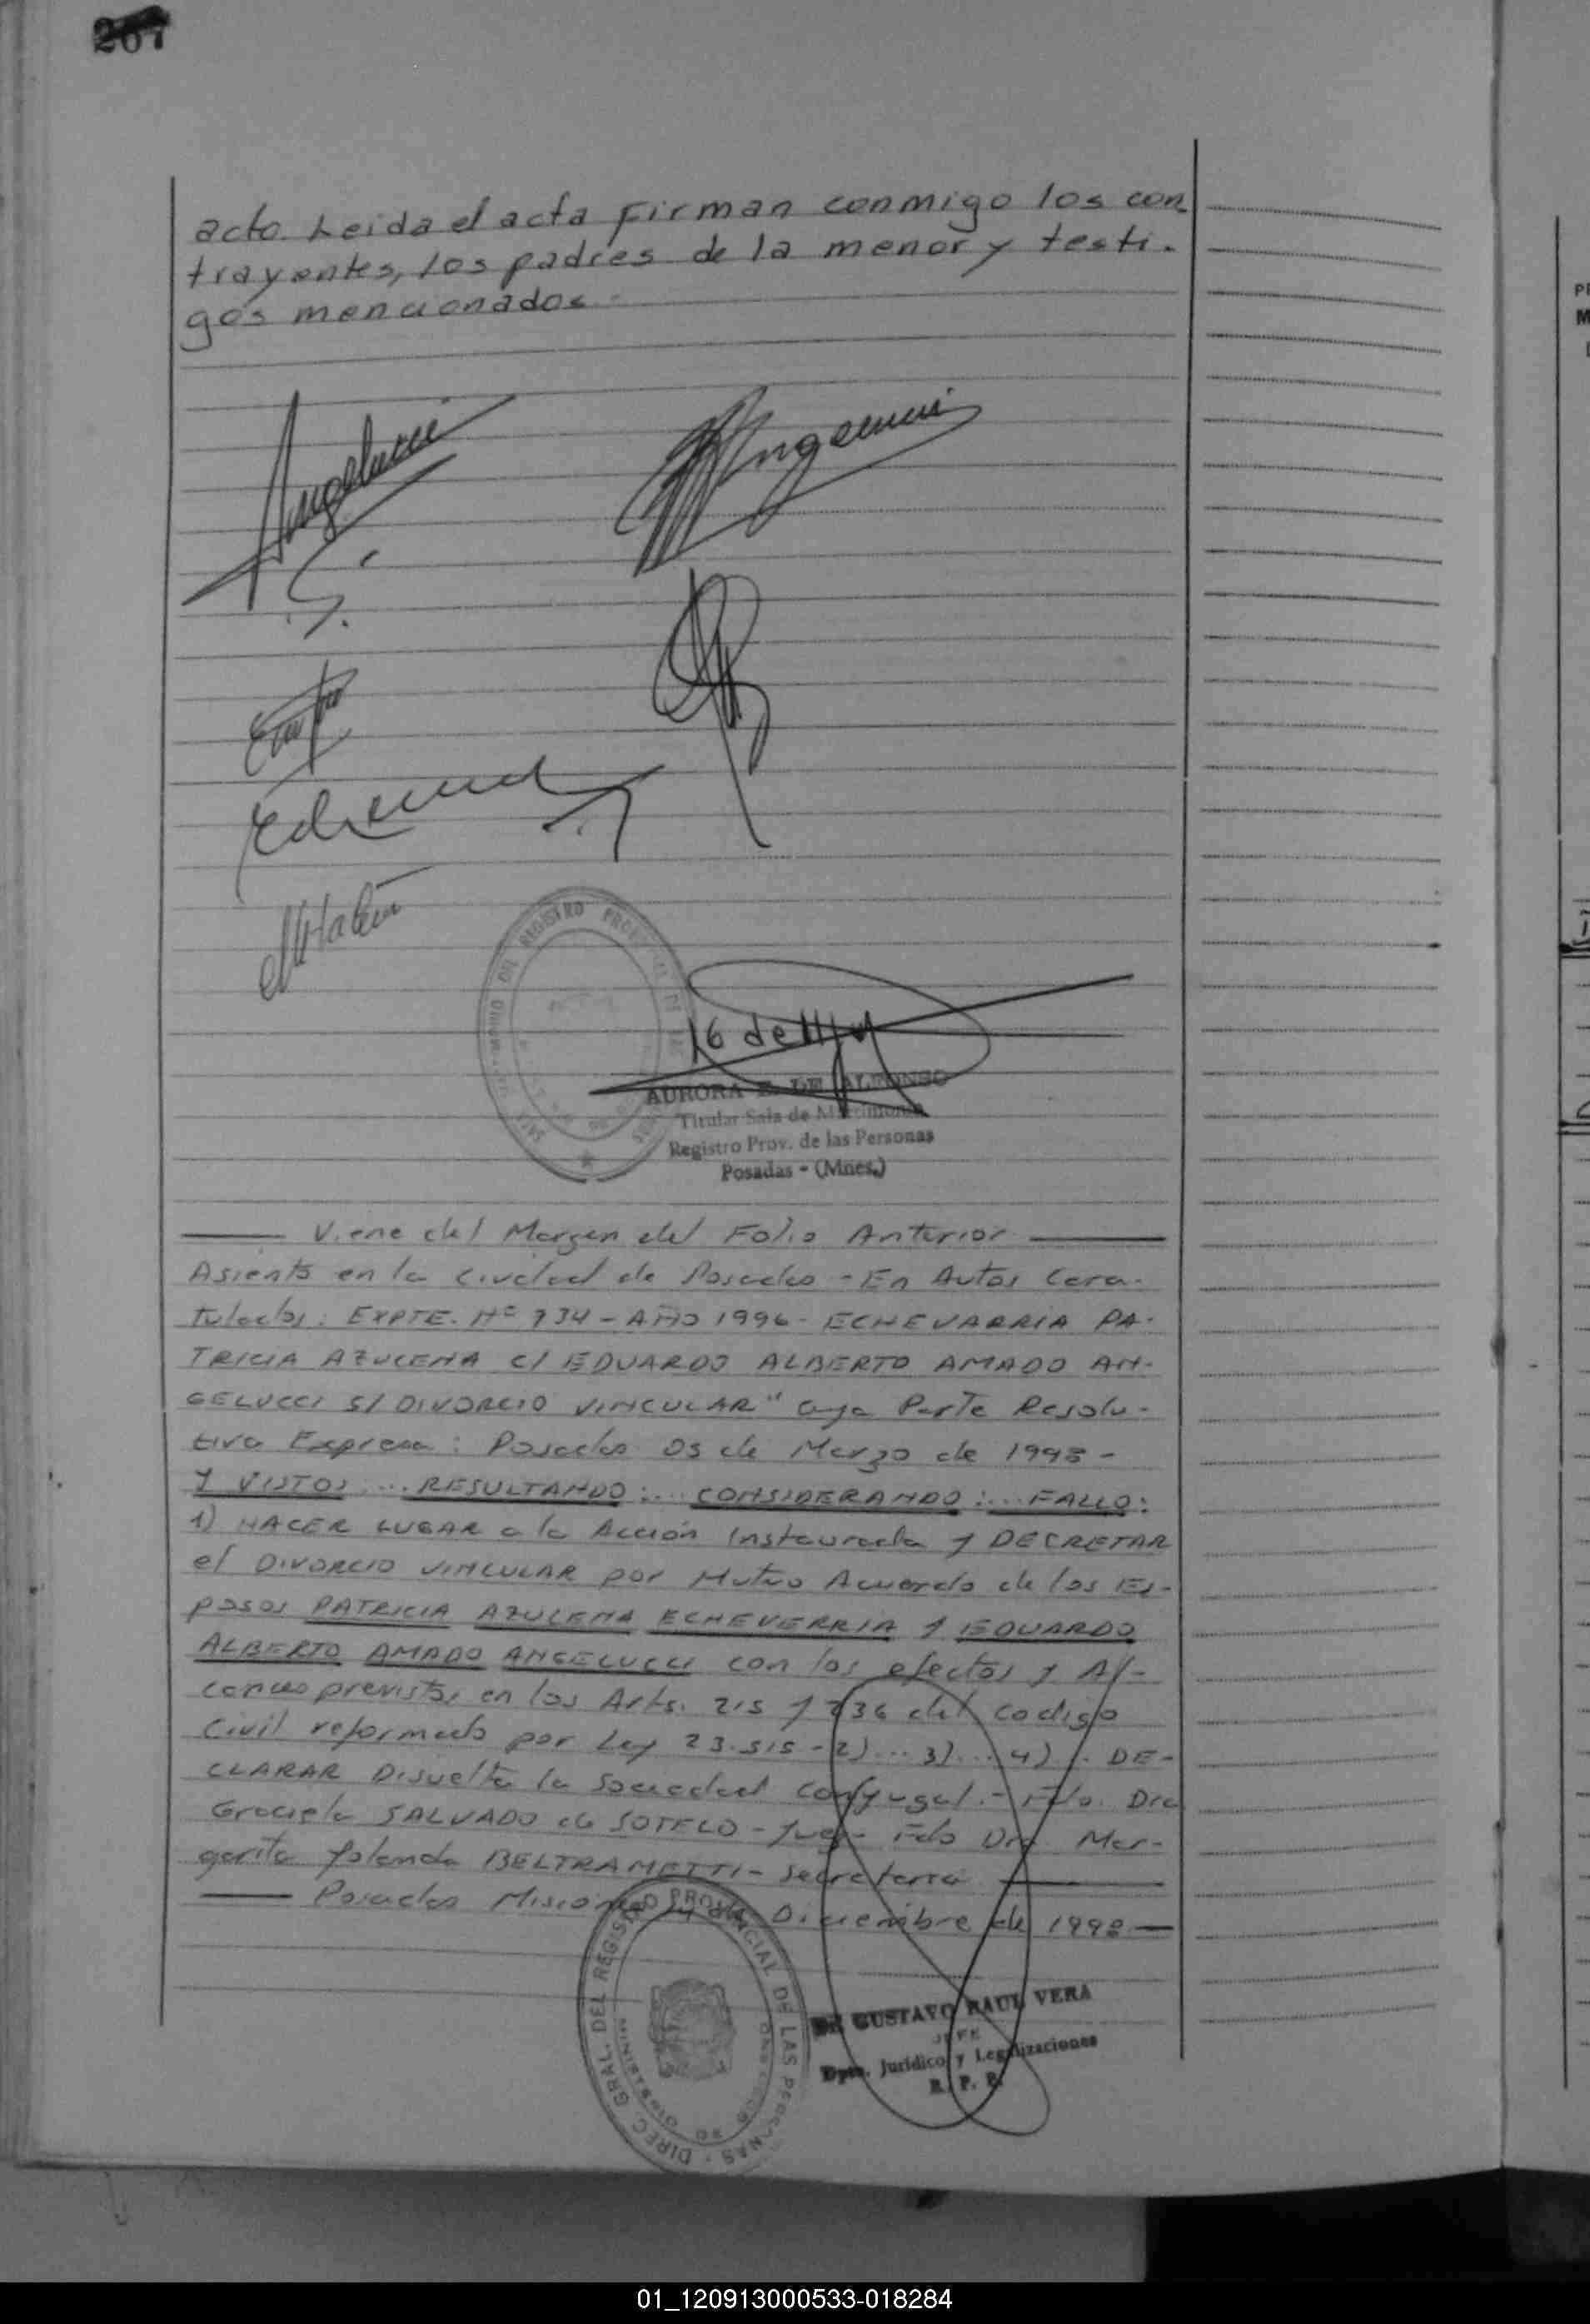 267
acto. Leida el acta firman conmigo los con
trayentes, los padres de la menor y testi-
gos mencionados.-
Angelucci
AURORA E. DE ALFONSO
Titular Sala de Matrimonio
Registro Prov. de las Personas
Posadas - (Mnes.)
Viene del Margen del Folio Anterior
Asiento en la ciudad de Posadas - En Autos Cara-
tulados: EXPTE. Nº 734 - AÑO 1996 - ECHEVARRIA PA-
TRICIA AZUCENA C/ EDUARDO ALBERTO AMADO AN-
GELUCCI S/ DIVORCIO VINCULAR" cuya Parte Resolu-
tiva Expresa: Posadas 05 de Marzo de 1998 -
Y VISTOS ... RESULTANDO: ... CONSIDERANDO: ... FALLO:
1) HACER LUGAR a la Acción Instaurada y DECRETAR
el DIVORCIO VINCULAR por Mutuo Acuerdo de los Es-
posos PATRICIA AZUCENA ECHEVERRIA y EDUARDO
ALBERTO AMADO ANGELUCCI con los efectos y Al-
cances previstos en los Arts. 215 y 236 del codigo
Civil reformado por Ley 23.515 - 2)... 3)... 4)... DE-
CLARAR Disuelta la Sociedad conyugal. - Fdo. Dra
Graciela SALVADO de SOTELO - Juez - Fdo Dra. Mar-
garita Yolanda BELTRAMETTI - Secretaria
Posadas Misiones 14 de Diciembre de 1998
DIREC. GRAL. DEL REGISTRO PROVINCIAL DE LAS PERSONAS
MINISTERIO DE GOBIERNO
GUSTAVO RAUL VERA
JEFE
Dpto. Jurídico y Legalizaciones
R. P. P.
01_120913000533-018284